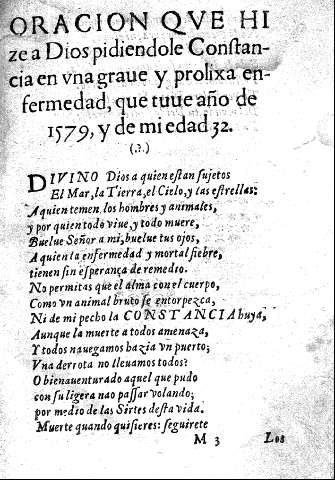 ORACION QVE HI
ze a Dios pidiendole Conſtan-
cia en vna graue y prolixa en-
fermedad, que tuue año de
1579, y de mi edad 32.
(.?.)
DIVINO Dios a quien eſtan ſujetos
El Mar, la Tierra, el Cielo, y las eſtrellas:
A quien temen los hombres y animales,
y por quien todo viue, y todo muere,
Buelue Señor a mi, buelue tus ojos,
A quien la enfermedad y mortal fiebre,
tienen ſin eſperança de remedio.
No permitas que el alma con el cuerpo,
Como vn animal bruto ſe entorpezca,
Ni de mi pecho la CONSTANCIA huya,
Aunque la muerte a todos amenaza,
Y todos nauegamos hazia vn puerto;
Vna derrota no lleuamos todos?
O bienauenturado aquel que pudo
con ſu ligera nao paſſar volando;
por medio de las Sirtes deſta vida.
Muerte quando quiſieres: ſeguirete
M 3 Los